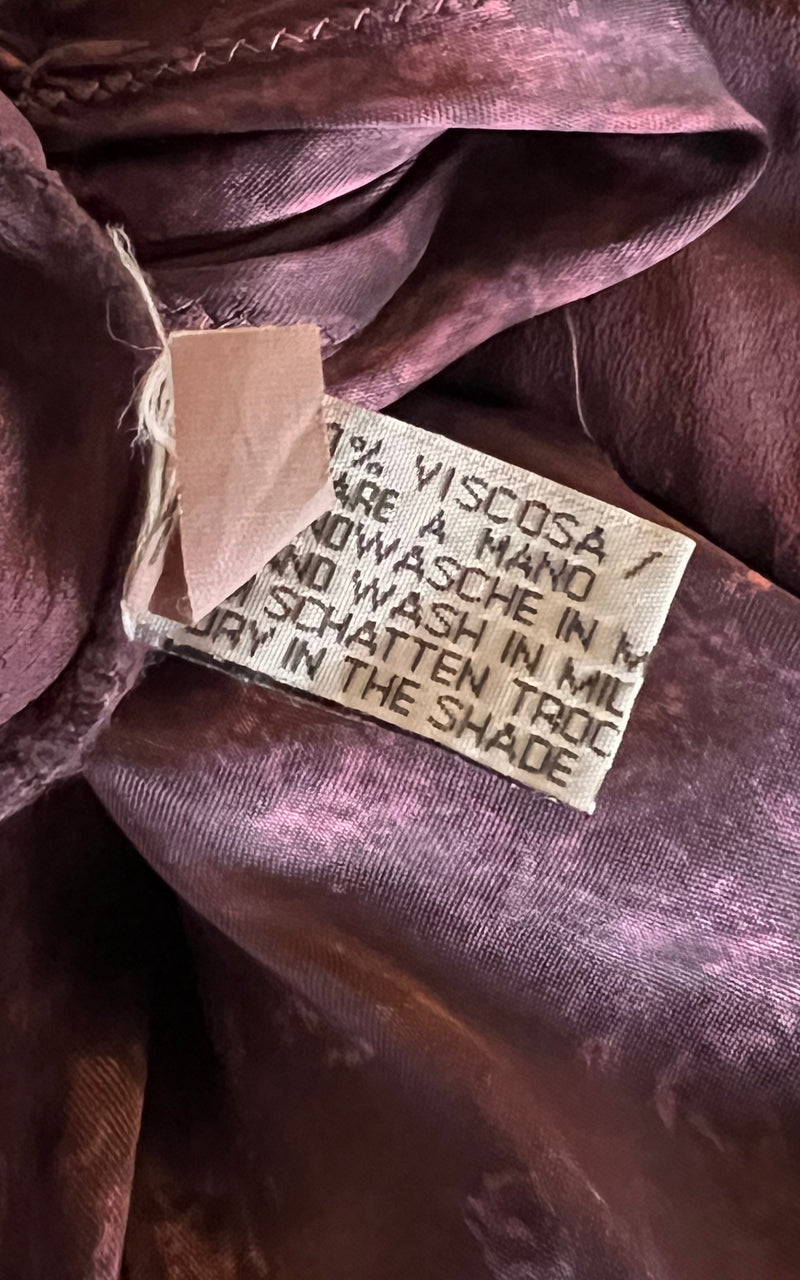 % VISCOSA /
ARE A MANO
NDWASCHE IN M
ND WASH IN MIL
SCHATTEN TROC
DRY IN THE SHADE